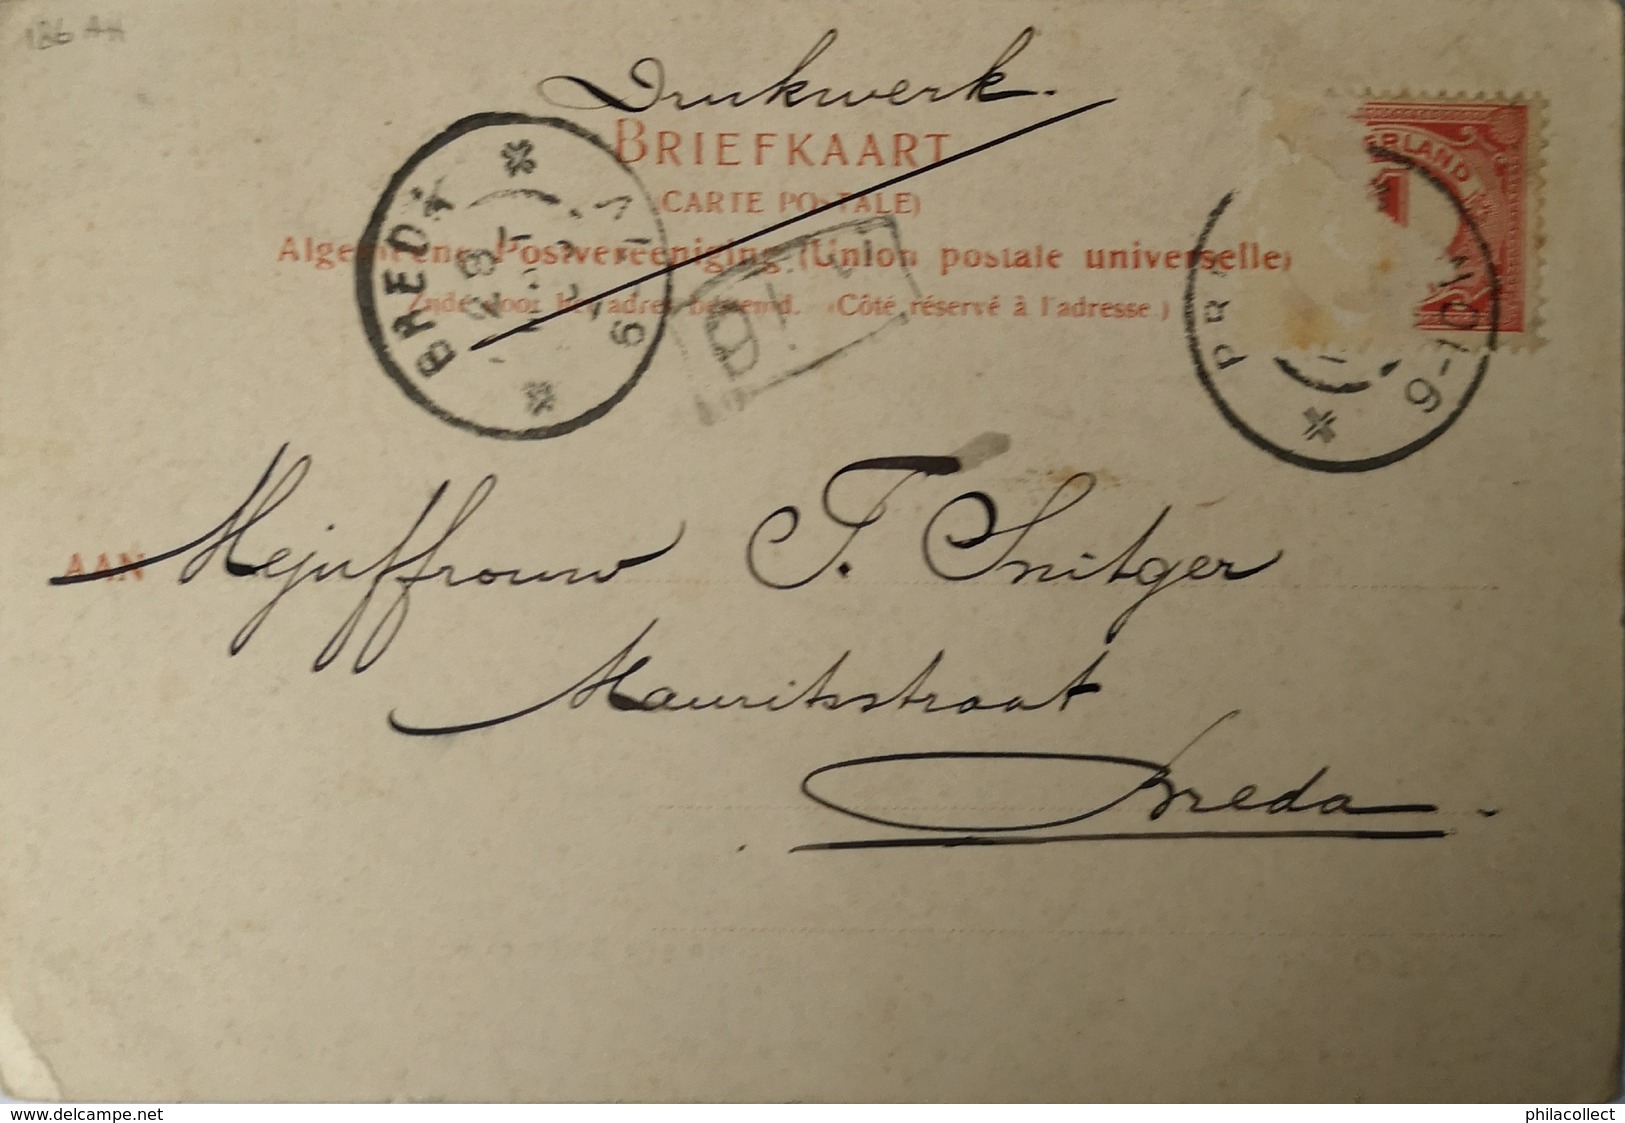 186 AH
Drukwerk.
BRIEFKAART
(CARTE POSTALE)
Algemeene Postvereeniging (Union postale universelle)
Zijde voor het adres bestemd. (Côté réservé à l'adresse.)
BREDA
ERLAND
1
9-10V
AAN Mejuffrouw F. Snitger
Mauritsstraat
Breda
www.delcampe.net
philacollect